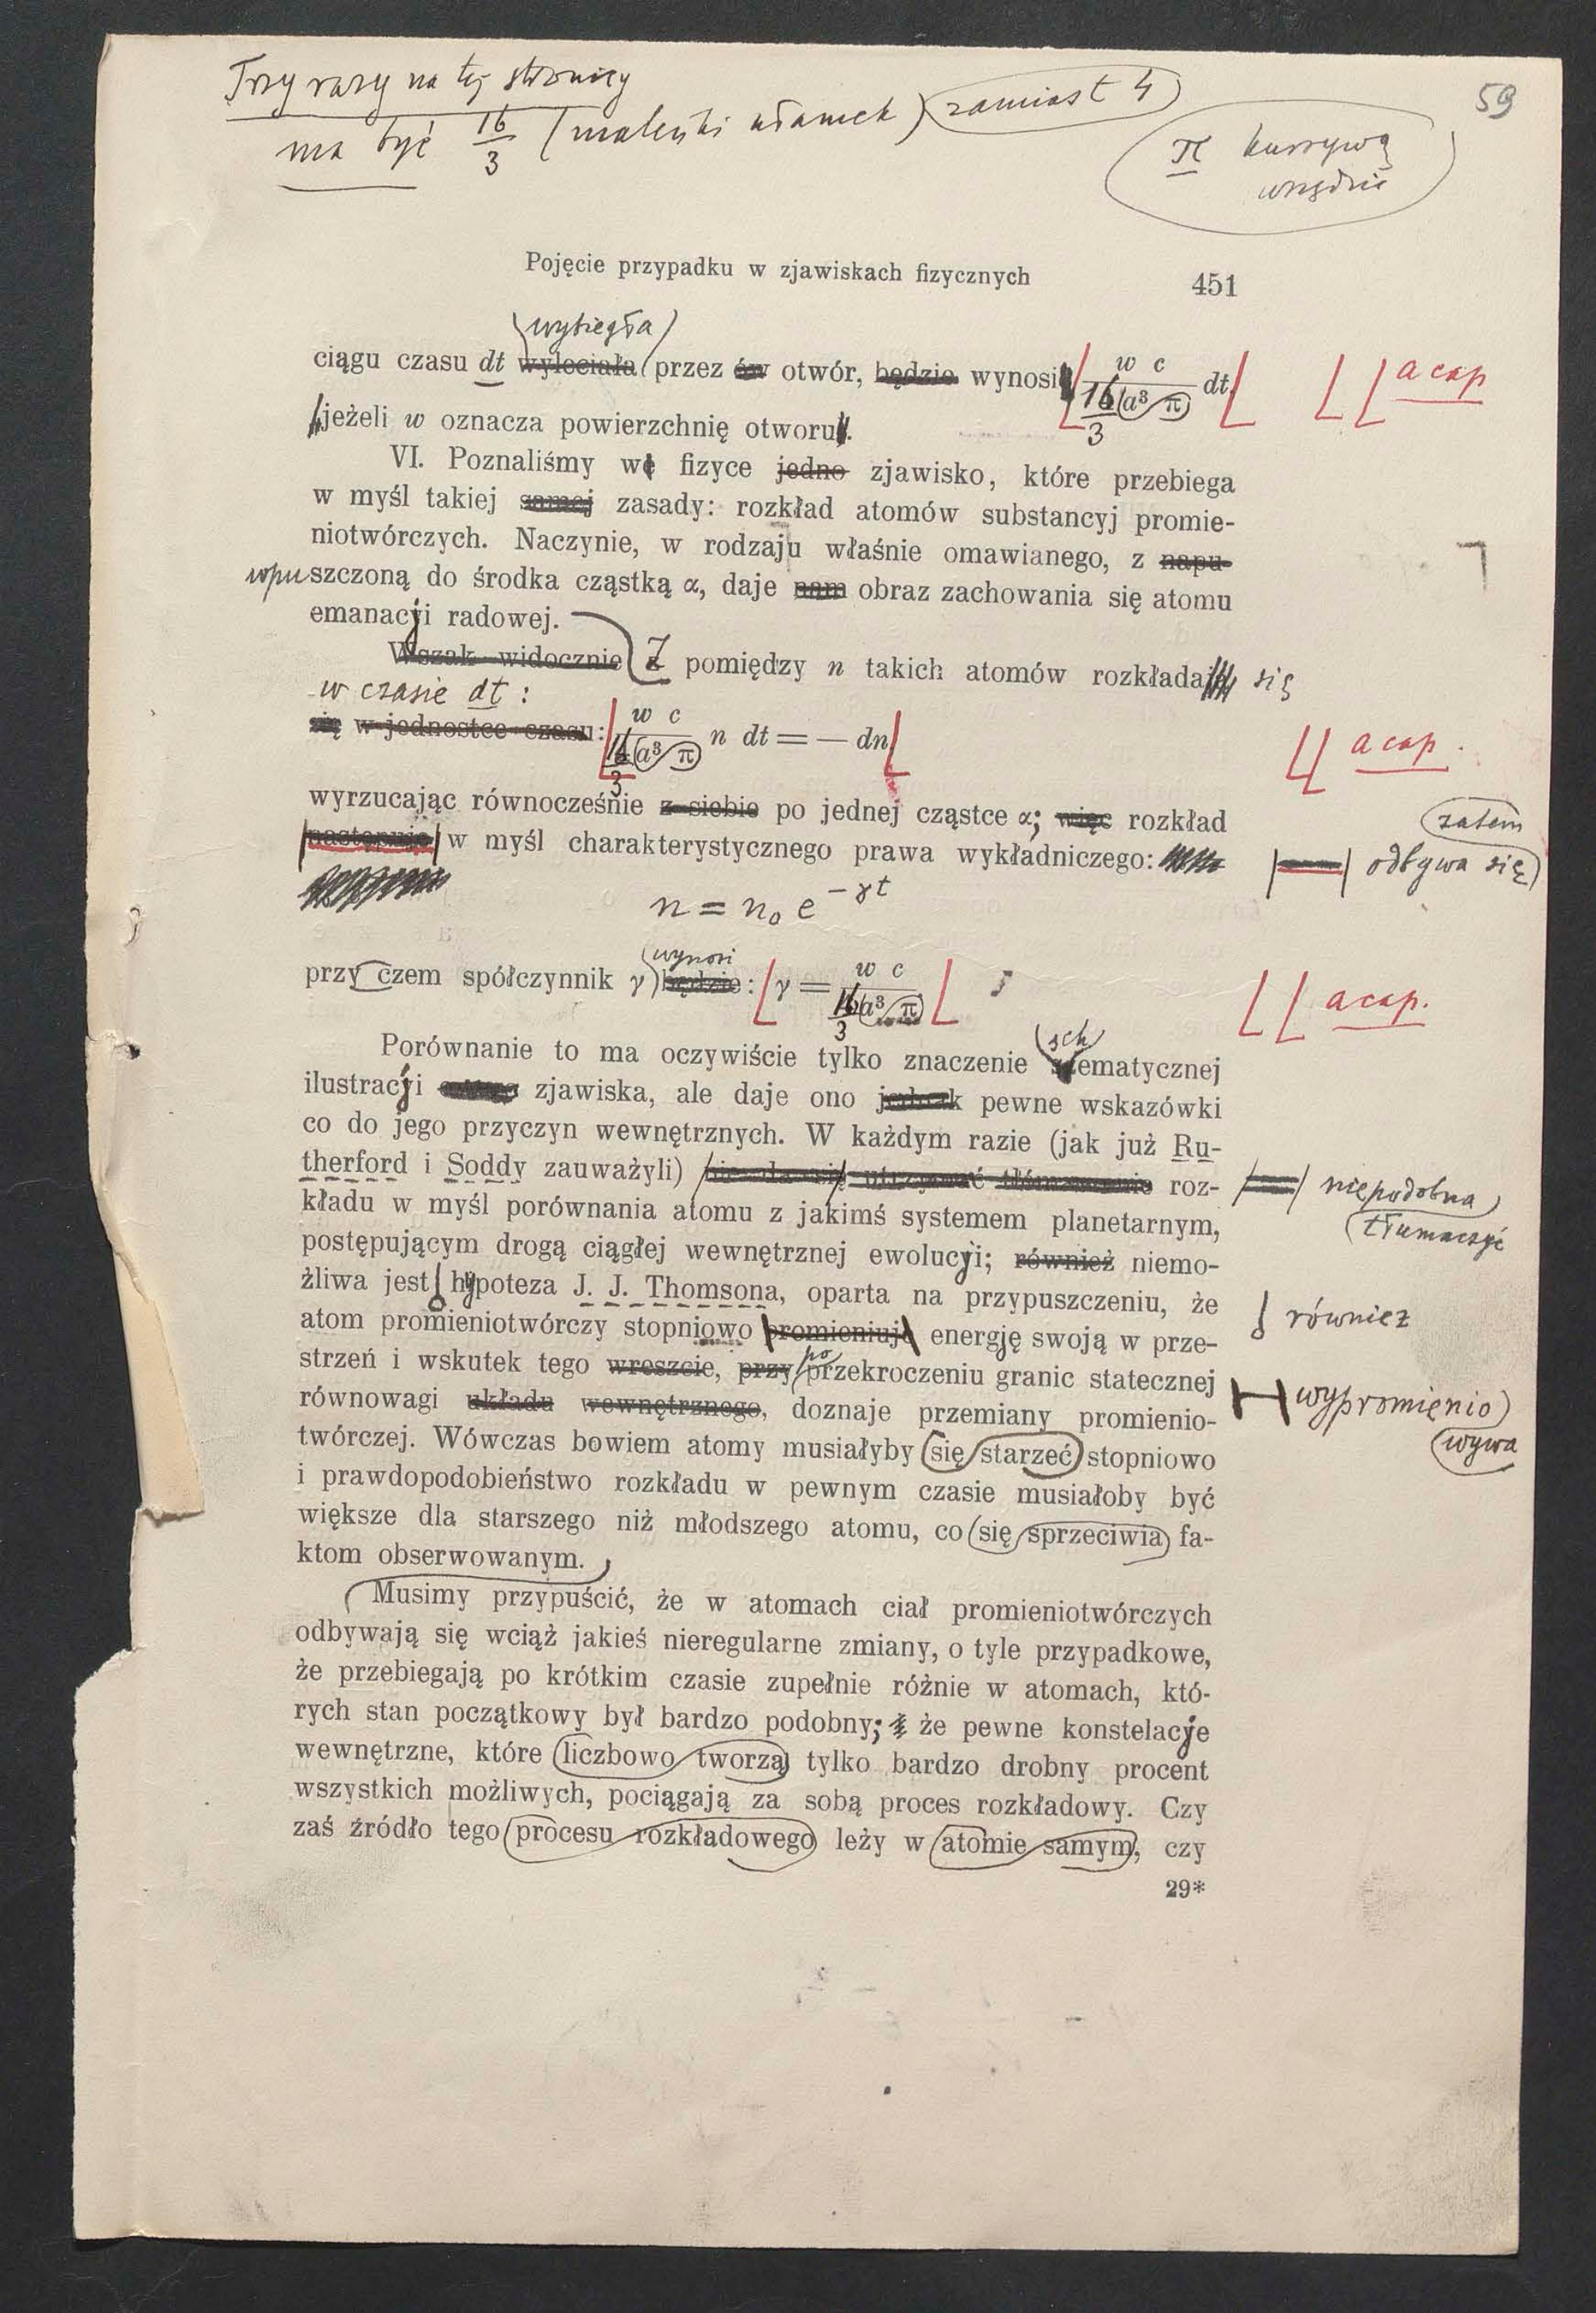 Trzy razy na tej stronicy
ma być 16/3 (maleńki ułamek) zamiast 4
59
π kursywą
wszędzie
Pojęcie przypadku w zjawiskach fizycznych 451
wybiegła
ciągu czasu dt wyleciała przez ów otwór, będzie wynosi w c / 16/3 a³ π dt, a cap
jeżeli w oznacza powierzchnię otworu.
VI. Poznaliśmy we fizyce jedno zjawisko, które przebiega
w myśl takiej samej zasady: rozkład atomów substancyj promie-
niotwórczych. Naczynie, w rodzaju właśnie omawianego, z napu-
wpuszczoną do środka cząstką α, daje nam obraz zachowania się atomu
emanacyi radowej.
Wszak widocznie Z pomiędzy n takich atomów rozkłada się
w czasie dt :
się w jednostce czasu: w c / 16/3 a³ π n dt = — dn a cap.
wyrzucając równocześnie z siebie po jednej cząstce α; więc rozkład zatem
następuje w myśl charakterystycznego prawa wykładniczego: odbywa się
n = n₀ e^{-γt}
wynosi
przy czem spółczynnik γ będzie: γ = w c / 16/3 a³ π a cap.
sch
Porównanie to ma oczywiście tylko znaczenie ematycznej
ilustracyi zjawiska, ale daje ono jednak pewne wskazówki
co do jego przyczyn wewnętrznych. W każdym razie (jak już Ru-
therford i Soddy zauważyli) nie da się utrzymać tłómaczenie roz- niepodobna
tłumaczyć
kładu w myśl porównania atomu z jakimś systemem planetarnym,
postępującym drogą ciągłej wewnętrznej ewolucyi; również niemo-
żliwa jest hypoteza J. J. Thomsona, oparta na przypuszczeniu, że
również
atom promieniotwórczy stopniowo promieniuje energję swoją w prze-
po
strzeń i wskutek tego wreszcie, przy przekroczeniu granic statecznej
wypromienio
równowagi układu wewnętrznego, doznaje przemiany promienio-
wywa
twórczej. Wówczas bowiem atomy musiałyby się starzeć stopniowo
i prawdopodobieństwo rozkładu w pewnym czasie musiałoby być
większe dla starszego niż młodszego atomu, co się sprzeciwia fa-
ktom obserwowanym.
Musimy przypuścić, że w atomach ciał promieniotwórczych
odbywają się wciąż jakieś nieregularne zmiany, o tyle przypadkowe,
że przebiegają po krótkim czasie zupełnie różnie w atomach, któ-
rych stan początkowy był bardzo podobny; że pewne konstelacye
wewnętrzne, które liczbowo tworzą tylko bardzo drobny procent
wszystkich możliwych, pociągają za sobą proces rozkładowy. Czy
zaś źródło tego procesu rozkładowego leży w atomie samym, czy
29*